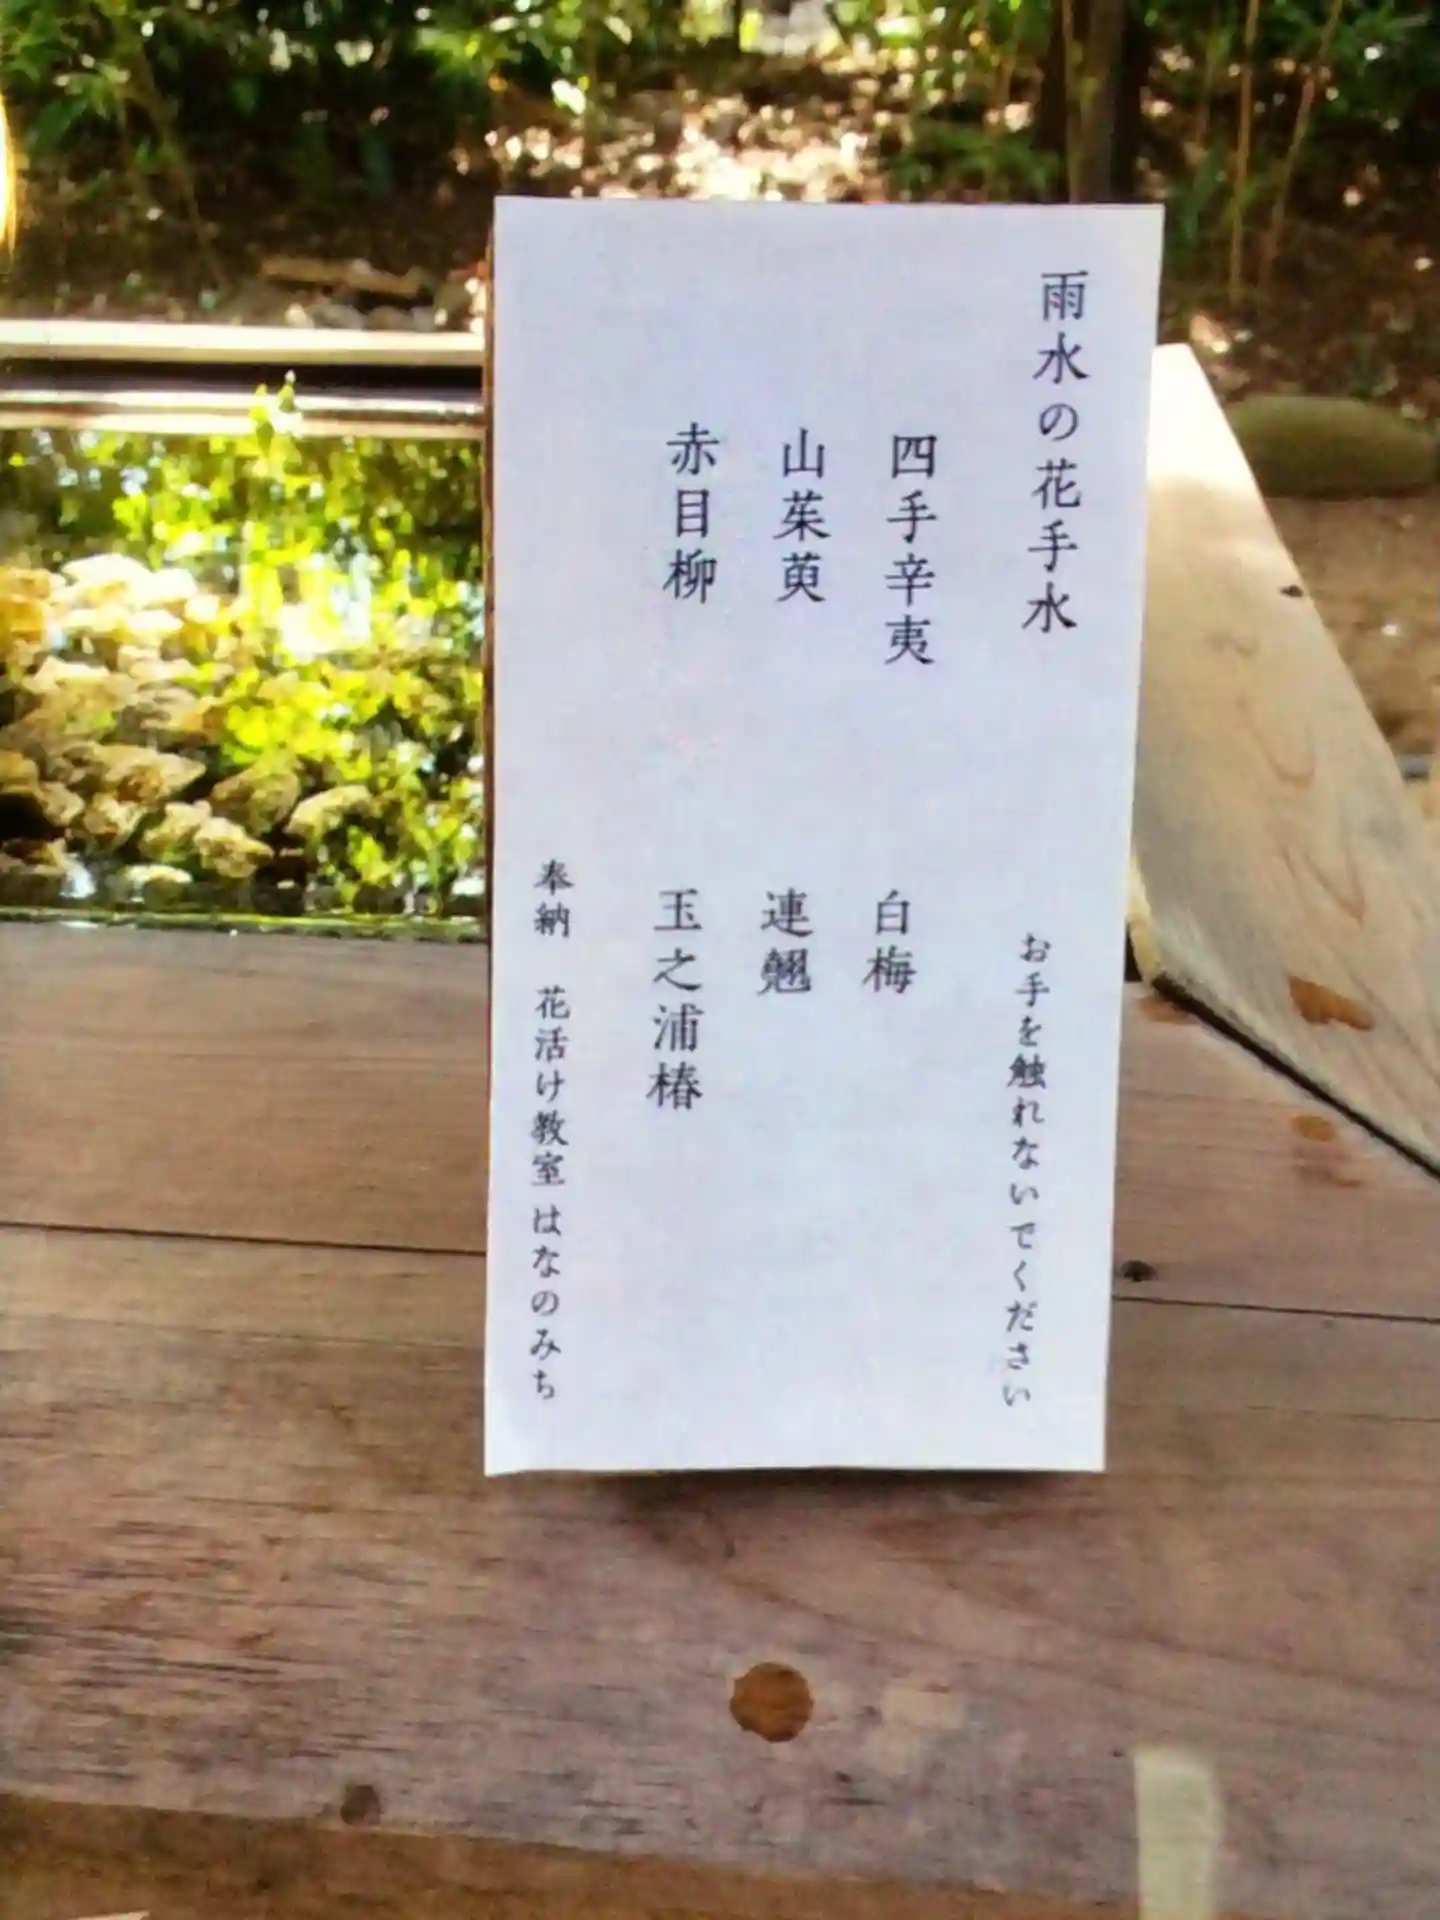 雨水の花手水
お手を触れないでください
四手辛夷
白梅
山茱萸
連翹
赤目柳
玉之浦椿
奉納 花活け教室 はなのみち